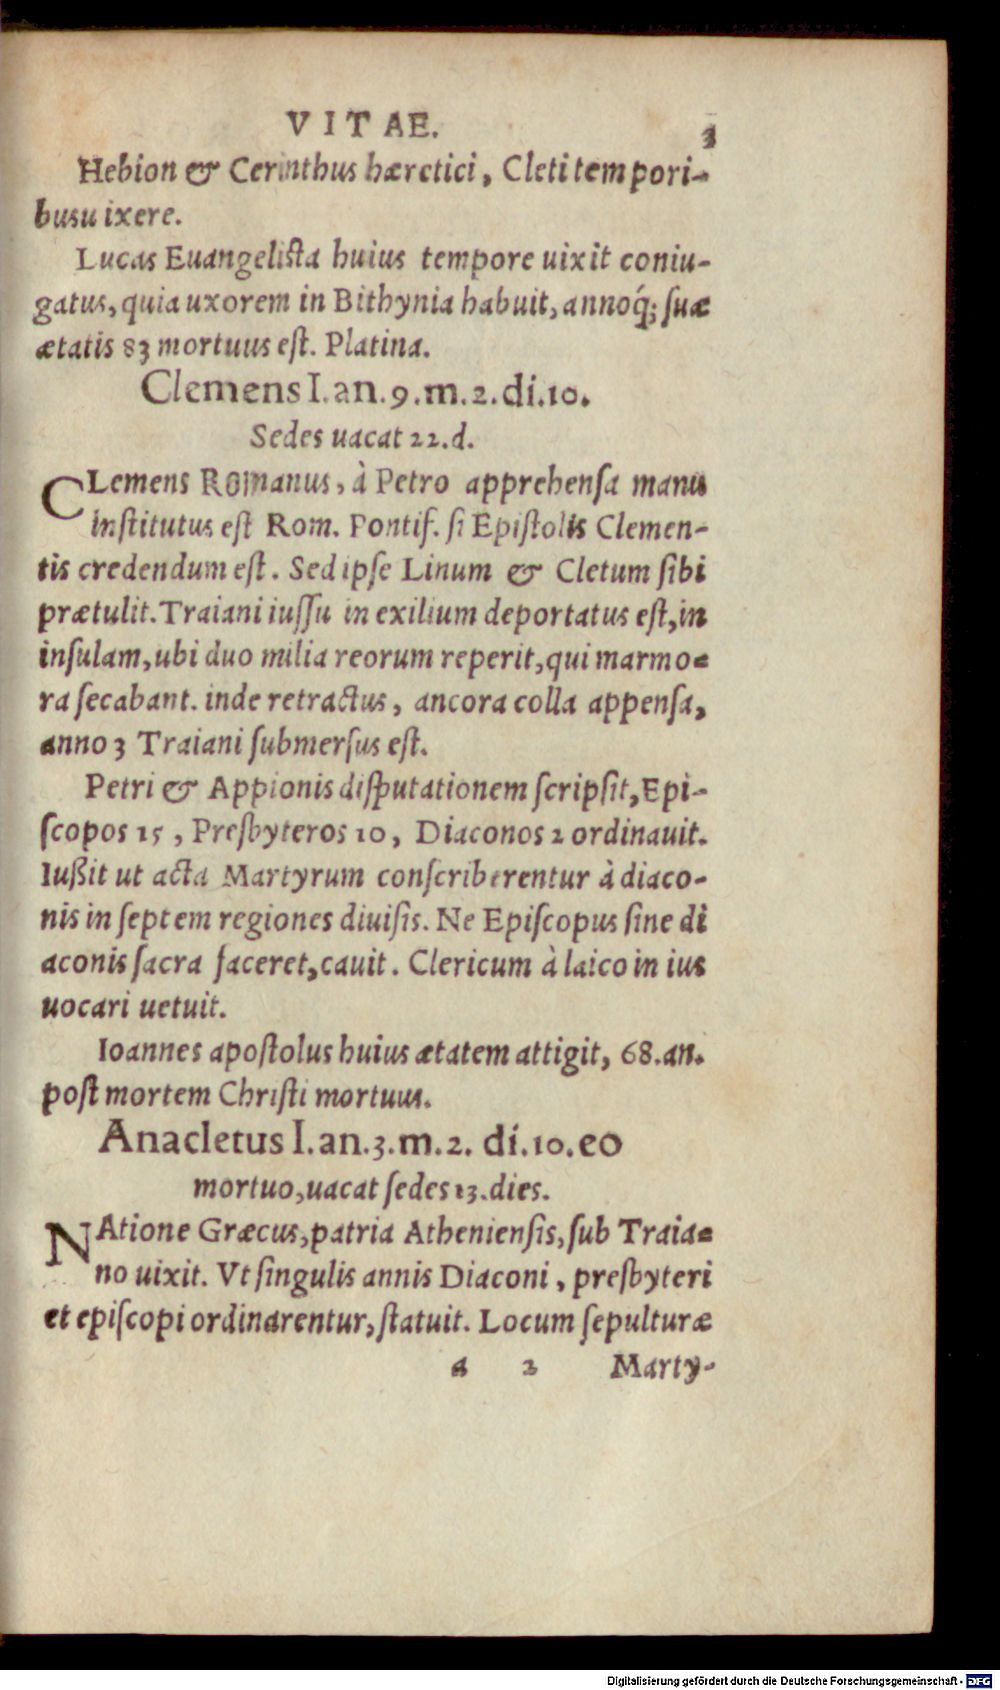 VITAE. 3
Hebion & Cerinthus hæretici, Cleti tempori-
bus uixere.
Lucas Euangelista huius tempore uixit coniu-
gatus, quia uxorem in Bithynia habuit, annoq́; suæ
ætatis 83 mortuus est. Platina.
Clemens I. an. 9. m. 2. di. 10.
Sedes uacat 22. d.
CLemens Romanus, à Petro apprehensa manu
institutus est Rom. Pontif. si Epistolis Clemen-
tis credendum est. Sed ipse Linum & Cletum sibi
prætulit. Traiani iussu in exilium deportatus est, in
insulam, ubi duo milia reorum reperit, qui marmo-
ra secabant. inde retractus, ancora colla appensa,
anno 3 Traiani submersus est.
Petri & Appionis disputationem scripsit, Epi-
scopos 15, Presbyteros 10, Diaconos 2 ordinauit.
Iußit ut acta Martyrum conscriberentur à diaco-
nis in septem regiones diuisis. Ne Episcopus sine di
aconis sacra faceret, cauit. Clericum à laico in ius
uocari uetuit.
Ioannes apostolus huius ætatem attigit, 68. an.
post mortem Christi mortuus.
Anacletus I. an. 3. m. 2. di. 10. eo
mortuo, uacat sedes 13. dies.
NAtione Græcus, patria Atheniensis, sub Traia-
no uixit. Vt singulis annis Diaconi, presbyteri
et episcopi ordinarentur, statuit. Locum sepulturæ
a 2 Marty-
Digitalisierung gefördert durch die Deutsche Forschungsgemeinschaft - DFG